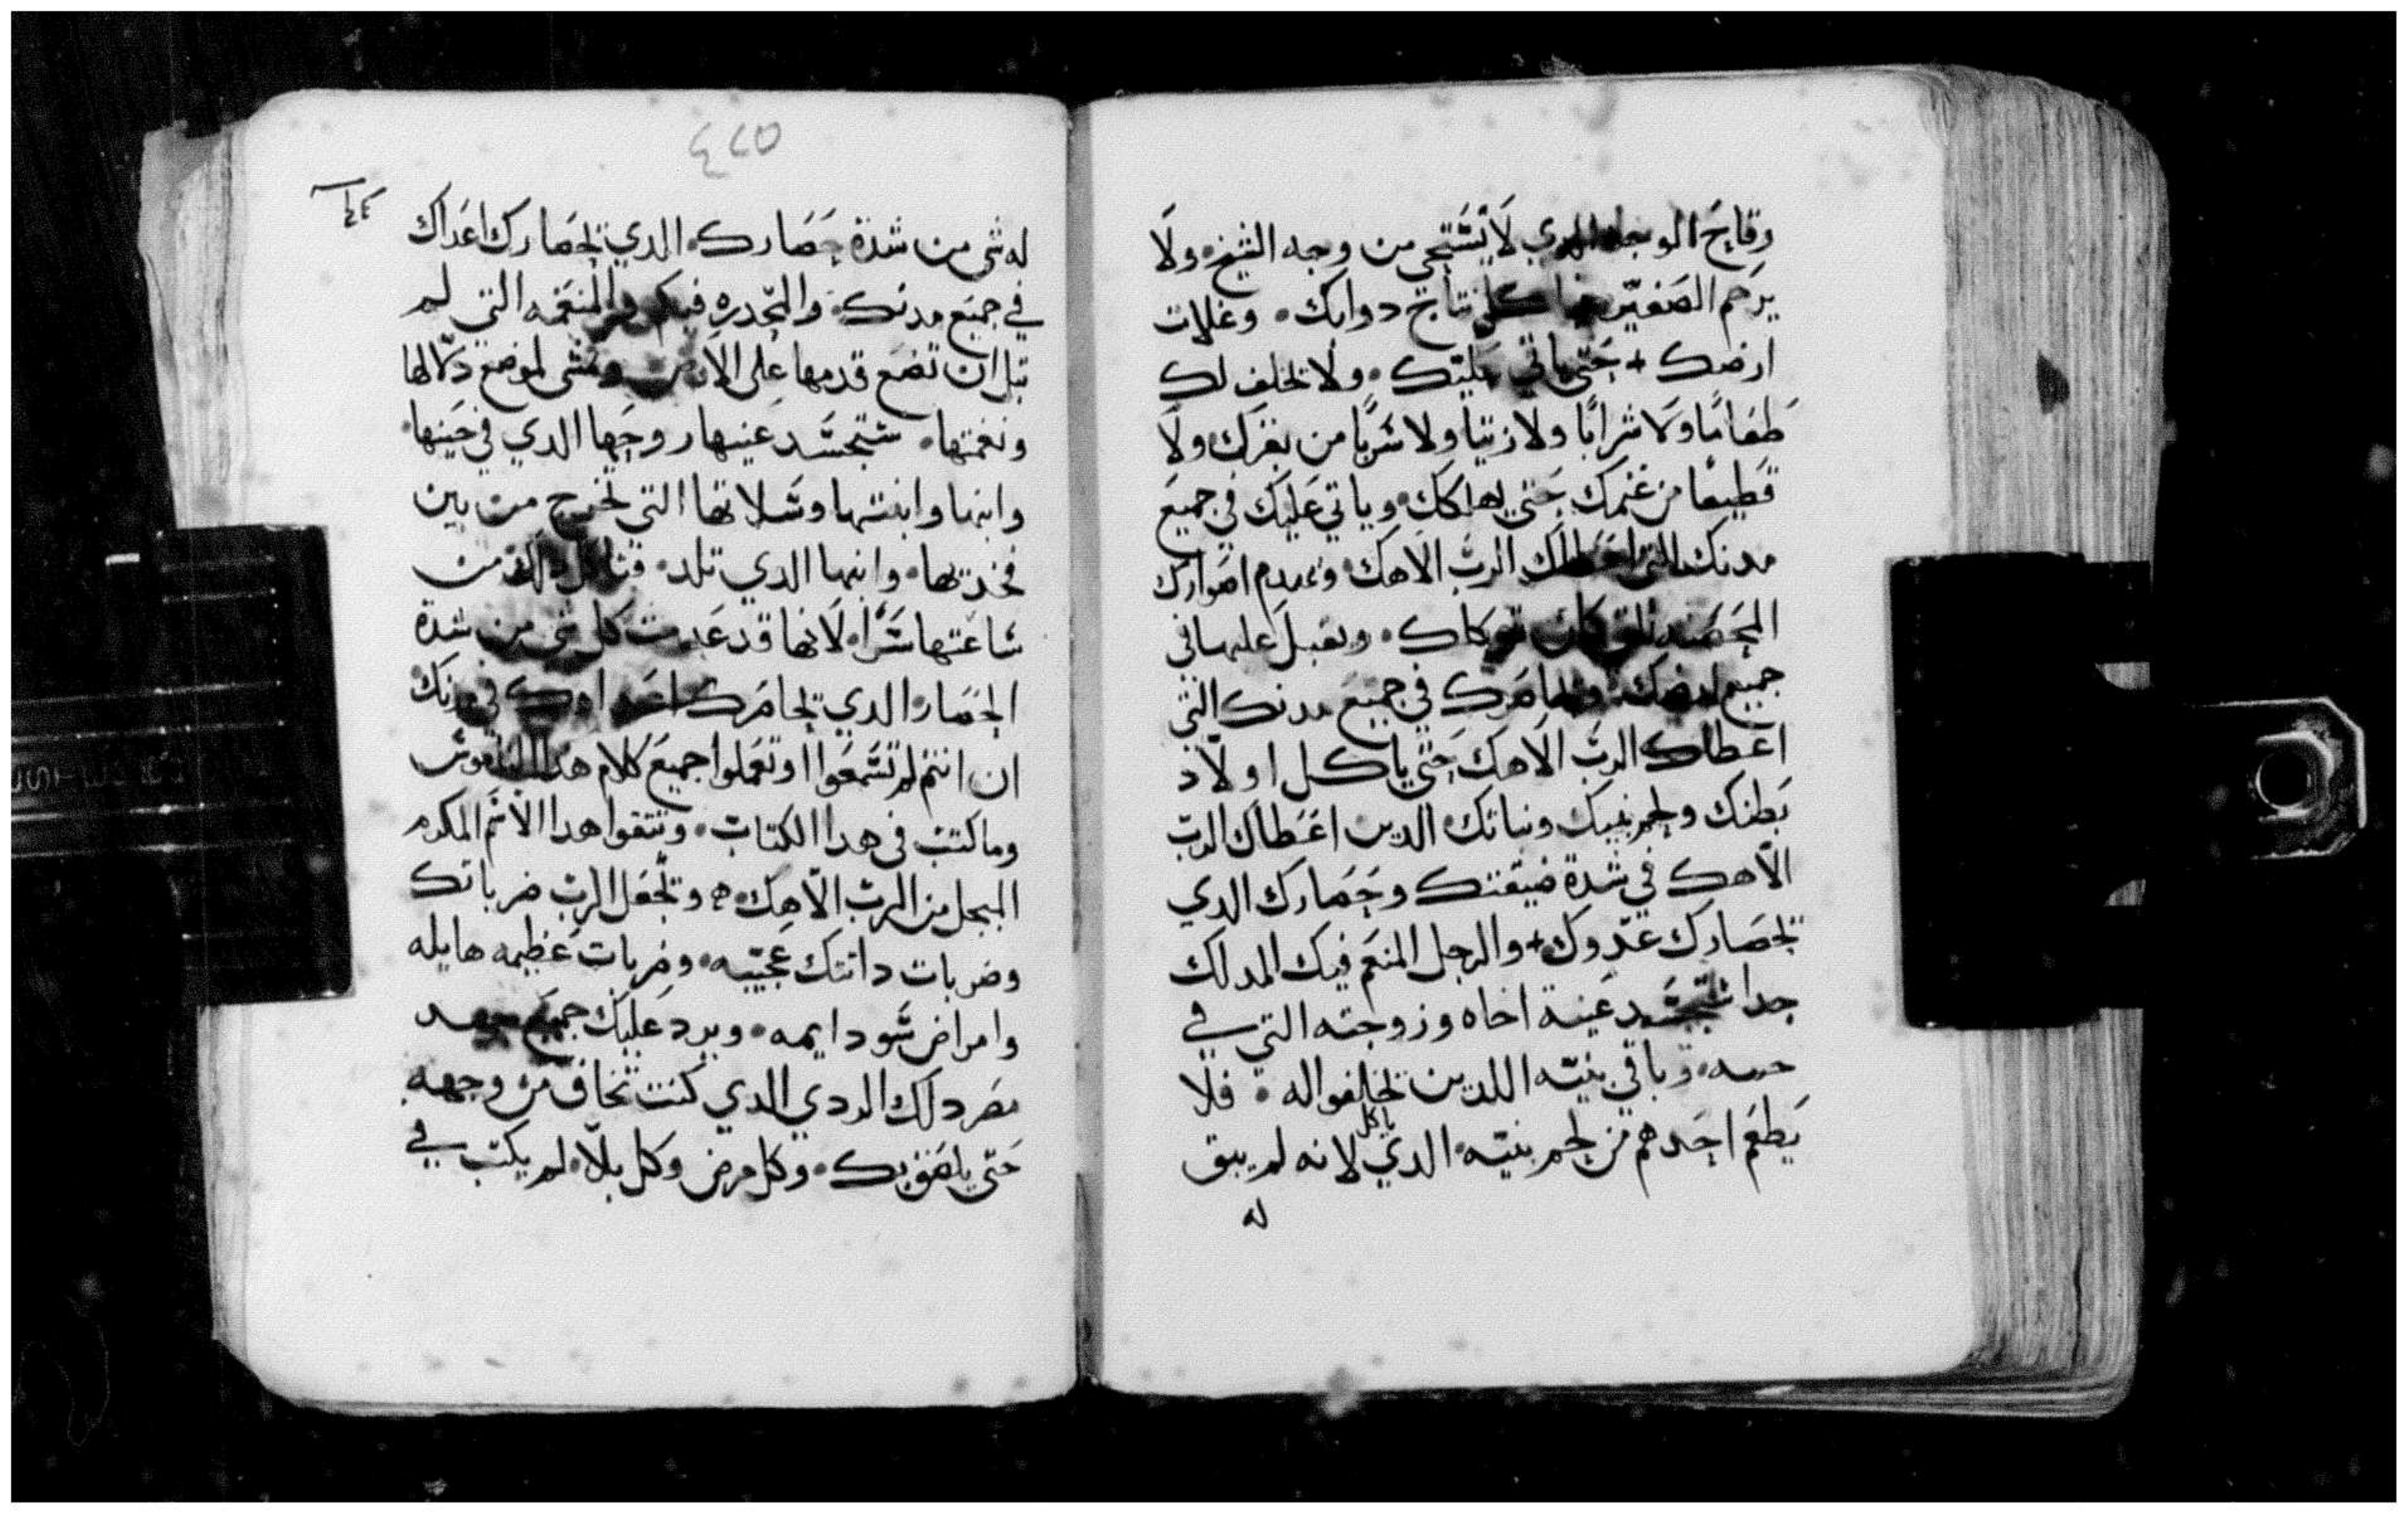 وقايح الوجه الدي لا يستحي من وجه الشيخ. ولا
يرحم الصغير كل نتاج دوابك. وغلات
ارضك + حتى ياتي عليك. ولا يخلف لك
طعاما ولا شرابا ولا زيتا ولا شربا من بقرك ولا
قطيعا من غنمك حتى يهلكك. وياتي عليك في جميع
مدنك التي اعطاك الرب الاهك. وعدم اصوارك
المحصنه كان توكلك. وتقبل عليها في
جميع ارضك. ويحاصرك في جميع مدنك التي
اعطاك الرب الاهك حتى ياكل اولاد
بطنك ولحم بنيك وبناتك الدين اعطاك الرب
الاهك في شدة ضيقتك وحصارك الدي
يحصارك عدوك + والرجل المنعم فيك المدلك
جدا ستحسد عينه اخاه وزوجته التي في
وباقي بنيه اللدين يخلفوا له. فلا
يطعم احدهم من لحم بنيه. الدي ياكل لانه لم يبق
له
٤٢٥
له شي من شدة حصارك. الدي يحصارك اعداك
في جميع مدنك. والمخدره فيكم والمنعمه التي لم
قبل ان تضع قدمها على الارض وتمشي لموضع دلالها
ونعمتها. ستحسد عينها روجها الدي في حينها.
وابنها وابنتها وسلاتها التي تخرج من بين
فخديها. وابنها الدي تلد. من
ساعتها سرا. لانها قد عدمت كل شي من شدة
الحصار الدي يحاصرك اعداوك في مدنك
ان انتم لم تسمعوا وتعملوا جميع كلام هدا الناموس
وما كتب في هدا الكتاب. وتتقوا هدا الاسم المكرم
المبجل من الرب الاهك. ويجعل الرب ضرباتك
وضربات داتك عجيبه. وضربات عظيمه هايله
وامراض سو دايمه. ويرد عليك جميع
مصر دلك الردي الدي كنت تخاف من وجهه
حتى يلصق بك. وكل مرض وكل بلا. لم يكتب في